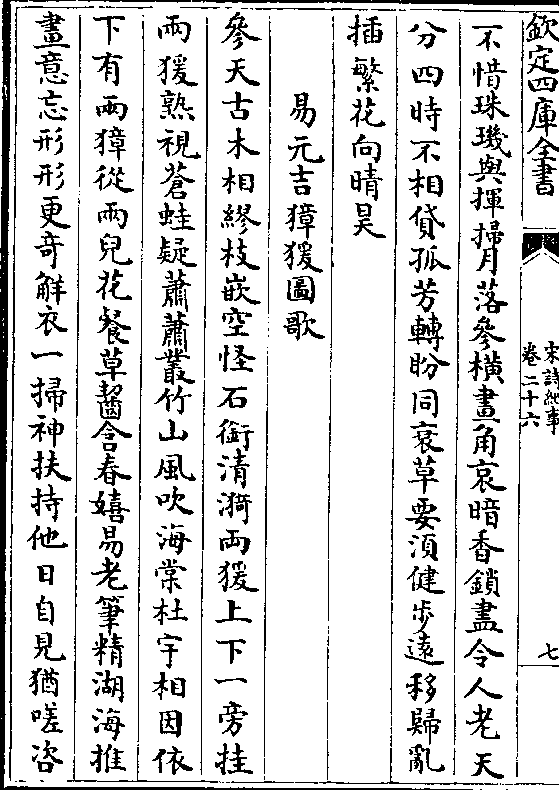 欽定四庫全書
宋詩紀事
卷二十六
七
不惜珠璣與揮掃月落參橫畫角哀暗香鎖盡令人老天
分四時不相貸孤芳轉盼同衰草要湏健步遠移歸亂
插繁花向晴昊
易元吉獐猨圖歌
參天古木相繆枝嵌空怪石銜清漪兩猨上下一旁挂
兩猨熟視蒼蛙疑蕭蕭叢竹山風吹海棠杜宇相因依
下有兩獐從兩兒花餐草齧含春嬉易老筆精湖海推
畫意忘形形更奇解衣一掃神扶持他日自見猶嗟咨